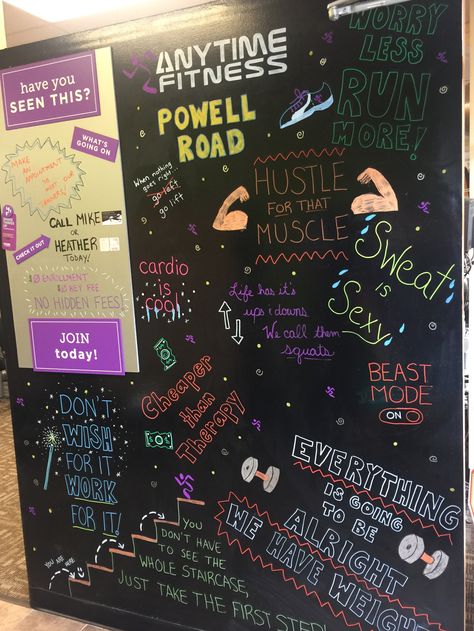 have you
SEEN THIS?
WHAT'S
GOING ON
MAKE AN
APPOINTMENT
WITH OUR
TRAINER!
CHECK IT OUT
CALL MIKE
OR
HEATHER
TODAY!
$0 ENROLLMENT
$0 KEY FEE
NO HIDDEN FEES
JOIN
today!
ANYTIME
FITNESS
POWELL
ROAD
WORRY
LESS
RUN
MORE!
When nothing
goes right,
go left
go lift
HUSTLE
FOR THAT
MUSCLE
Sweat
is
Sexy
cardio
is
cool
Life has it's
ups & downs
We call them
squats
BEAST
MODE
ON
Cheaper
than
Therapy
DON'T
WISH
FOR IT
WORK
FOR IT!
EVERYTHING
IS GOING
TO BE
ALRIGHT
WE HAVE WEIGHTS
YOU ARE
HERE
YOU
DON'T HAVE
TO SEE THE
WHOLE STAIRCASE,
JUST TAKE THE FIRST STEP!